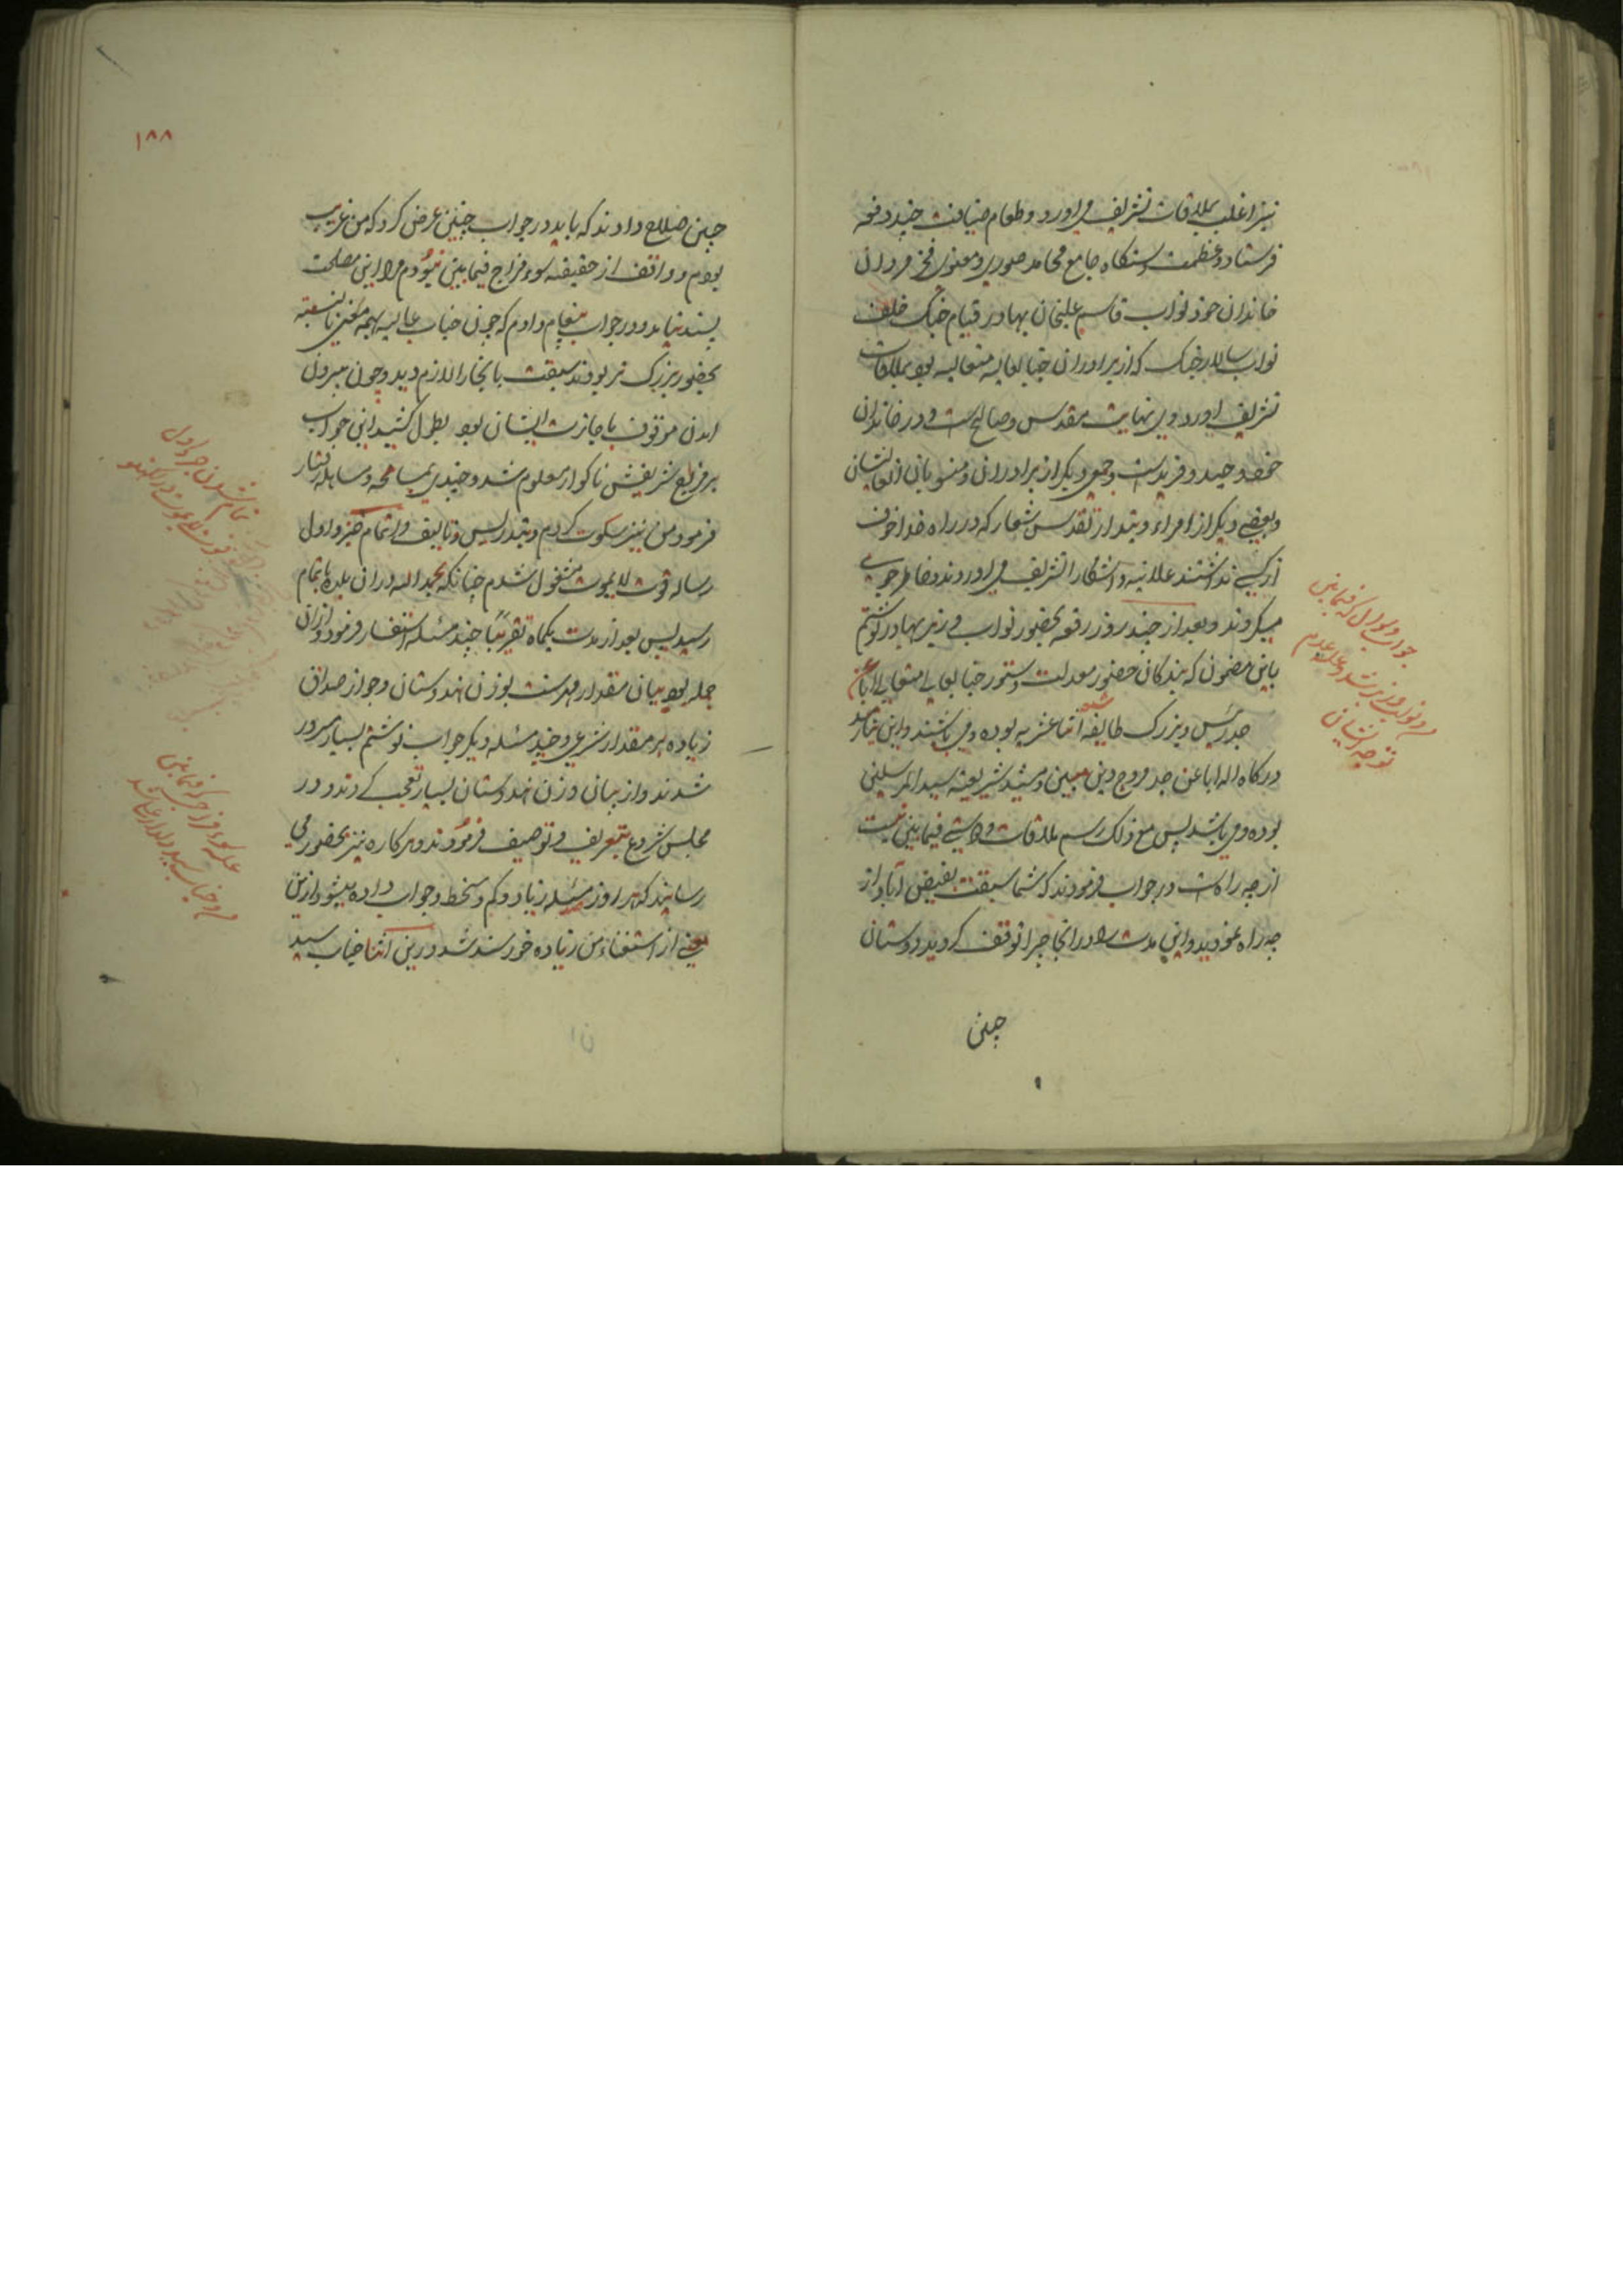 نیز اغلب بملاقات تشریف می اورد و طعام ضیافت چند دفعه
فرستاد و عظمت دستکاه جامع محامد صوری و معنوی فخر مردان
خاندان خود نواب قاسم علیخان بهادر قیام جنک خلف
نواب سالار جنک که از برادران جنابعالیه متعالیه بود بملاقات
تشریف اورد وی نهایت مقدس و صالح است و در خاندان
خود وحید و فرید است و جمعی دیکر از برادران و منسوبان ان عالیشان
و بعضی دیکر از امراء دیندار تقدس شعار که در راه خدا خوف
از کسی نداشتند علانیه و اشکارا تشریف می اوردند و خاطرجویی
میکردند و بعد از چند روز رقعه بحضور نواب وزیر بهادر نوشتم
باین مضمون که بندکان حضور معدلت دستور جنابعالی متعالی ابا عن
جد رئیس و بزرک طایفه شیعه اثنا عشریه بوده و می باشند و این نیازمند
درکاه اله ابا عن جد مروج دین مبین و مشید شریعة سید المرسلین
بوده و می باشد پس مع ذلک رسم ملاقات و اشتی فیمابین نیست
از چه راه است در جواب فرمودند که شما سبقت بفیض آباد از
چه راه نمودید و این مدت را در انجا چرا توقف کردید دوستان
چنین
جواب و سوال که فیمابین
توجه ایشان
۱۸۸
چنین صلاح دادند که باید در جواب چنین عرض کرد که من غریب
بودم و واقف از حقیقة سوء مزاج فیمابین نبودم مرا این مصلحت
پسند نیامد و در جواب پیغام دادم که چون جناب عالیه بهمه معنی بالنسبة
بحضور بزرک تر بودند سبقت بانجا را لازم دید و چون بیرون
امدن موقوف باجازت ایشان بود بطول کشید این جواب
بر طبع شریفش ناکوار معلوم شد و چندی بمسامحه و مساهله رفتار
فرمود من نیز سکوت کردم و بتدریس و تالیف و اتمام جزو اول
رساله قوت لایموت مشغول شدم چنانکه بحمد الله در ان بلده باتمام
رسید پس بعد از مدت یکماه تقریبًا چند مسئله استفسار فرمود و از ان
جمله بود بیان مقدار مهر سنت بوزن هندوستان و جواز صداق
زیاده بر مقدار شرعی و چند مسئله دیکر جواب نوشتم بسیار مسرور
شدند و از بیان وزن هندوستان بسیار تعجب کردند و در
مجلس شروع بتعریف و توصیف فرمودند و هرکاره نیز بحضور می
رسانید که هر روز مسئله زیاد و کم و بخط و جواب داده میشود ازین
معنی از استغناء من زیاده خورسند شد درین اثنا جناب سید
تمام شدن جزو اول
علت سوء مزاج که فیمابین